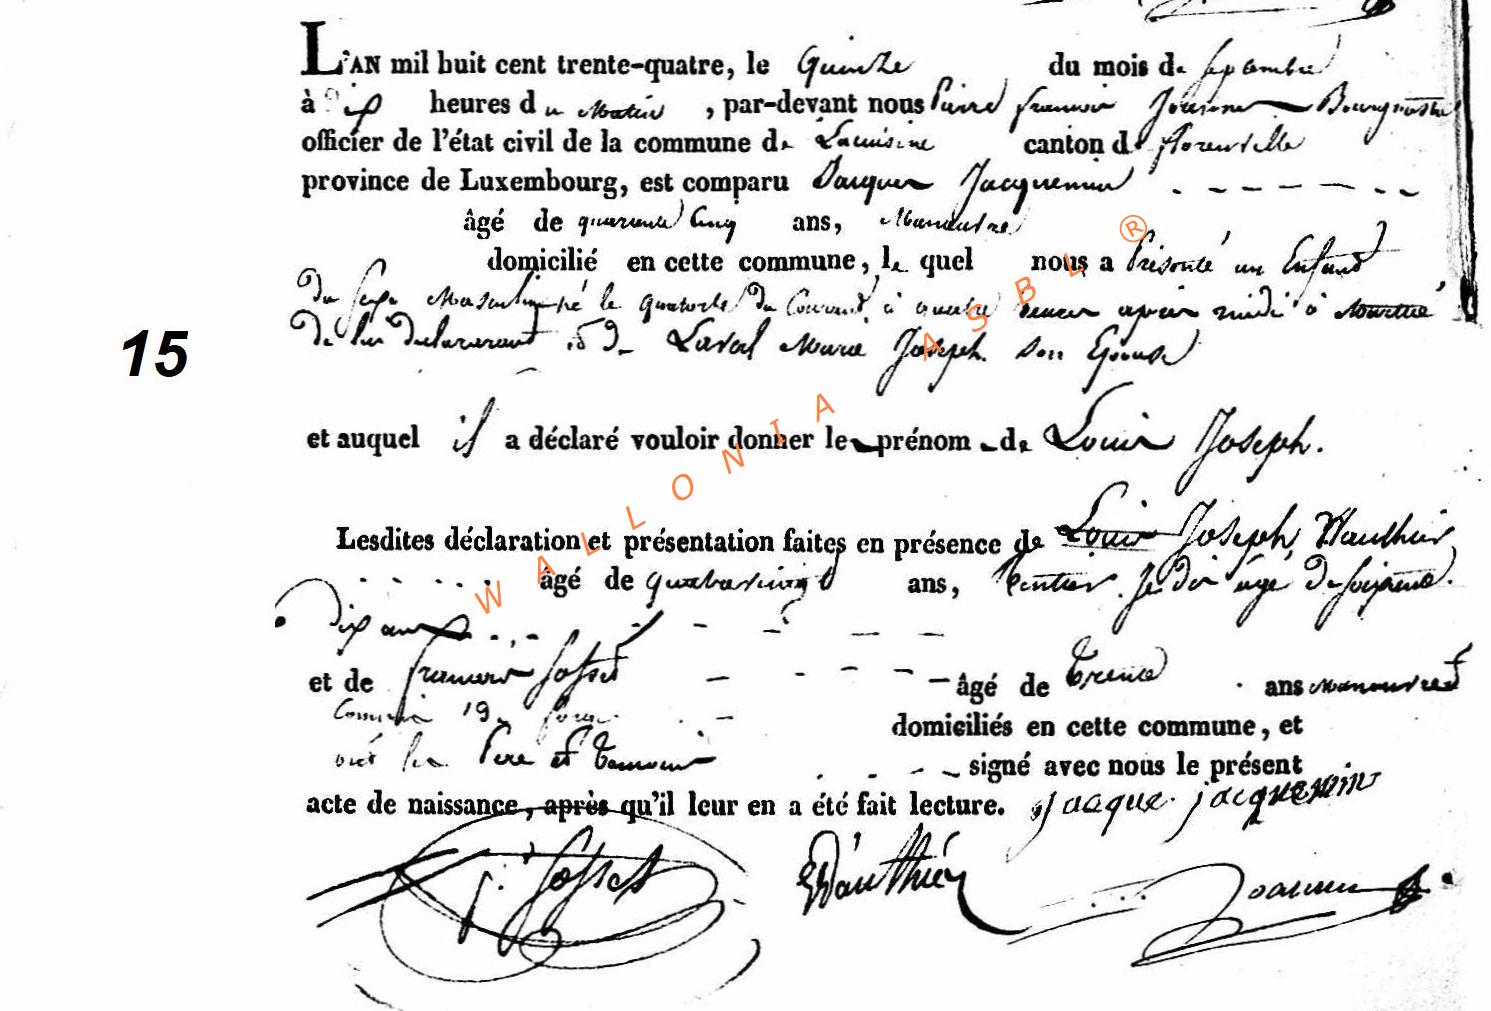 L'AN mil huit cent trente-quatre, le Quinze du mois de septembre
à dix heures du Matin, par-devant nous Pierre françois Bourgmestre
officier de l'état civil de la commune de Lacuisine canton de florenville
province de Luxembourg, est comparu Jacques Jacquemin
âgé de quarante Cinq ans, Manœuvre
domicilié en cette commune, le quel nous a présenté un Enfant
Du sexe Masculin né le quatorze Du Courant à quatre heures après midi à
De lui Declarant et De Laval Marie Joseph son Epouse
15
et auquel il a déclaré vouloir donner le prénom de Louis Joseph.
Lesdites déclaration et présentation faites en présence de Louis Joseph Wauthier
âgé de quatrevingt ans, Rentier. Je Dis âgé De soixante
Dix ans
et de françois Josset âgé de Trente ans Manœuvre et
domiciliés en cette commune, et
ont les Père et Temoins signé avec nous le présent
acte de naissance, après qu'il leur en a été fait lecture. jacque jacquemin
f. Josset Wauthier
WALLONIA ASBL ®